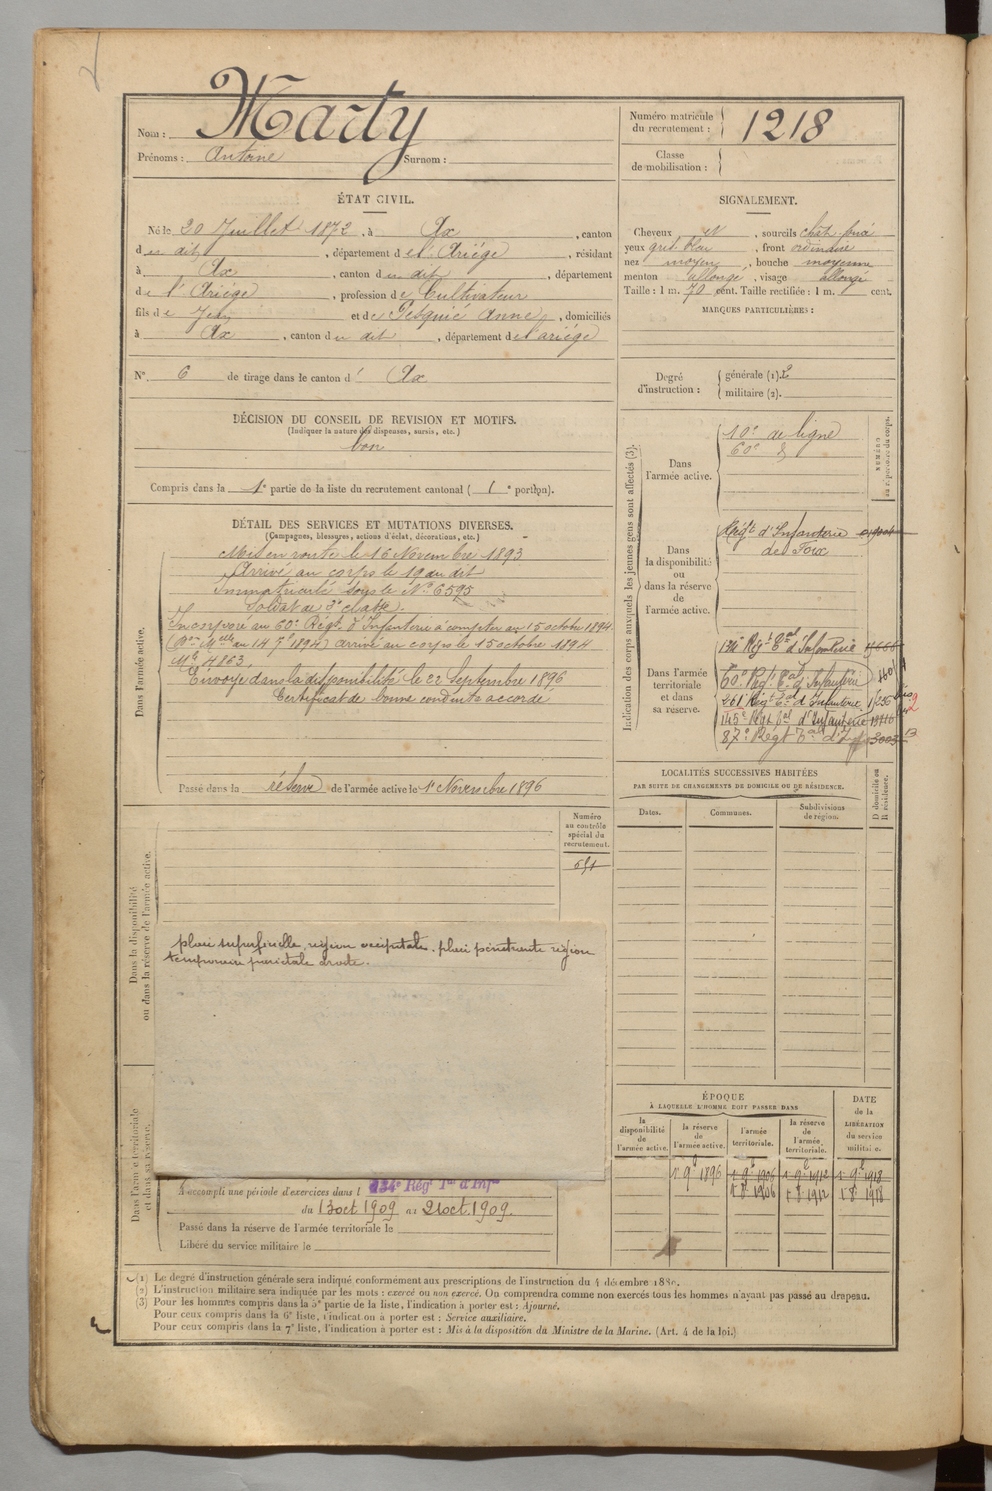 Nom : Marty
Prénoms : Antoine Surnom :
Numéro matricule du recrutement : 1218
Classe de mobilisation :
ÉTAT CIVIL.
Né le 20 Juillet 1872, à Ax, canton
du dit, département de l'Ariège, résidant
à Ax, canton du dit, département
de l'Ariège, profession de Cultivateur
fils de Jean et de Pesquié Anne, domiciliés
à Ax, canton du dit, département de l'ariège
N° 6 de tirage dans le canton d' Ax
SIGNALEMENT.
Cheveux N, sourcils chât.
yeux gris bleu, front ordinaire
nez moyen, bouche moyenne
menton allongé, visage allongé
Taille : 1 m. 70 cent. Taille rectifiée : 1 m. cent.
MARQUES PARTICULIÈRES :
Degré d'instruction : générale (1). 2
militaire (2).
DÉCISION DU CONSEIL DE REVISION ET MOTIFS.
(Indiquer la nature des dispenses, sursis, etc.)
bon
Compris dans la 1e partie de la liste du recrutement cantonal (1e portion).
DÉTAIL DES SERVICES ET MUTATIONS DIVERSES.
(Campagnes, blessures, actions d'éclat, décorations, etc.)
Dans l'armée active.
Mis en route le 16 Novembre 1893
Arrivé au corps le 19 du dit
Immatriculé sous le N° 6595
Soldat de 2e classe.
Incorporé au 60e Régt d'Infanterie à compter du 15 octobre 1894
au 14 7e 1894) arrivé au corps le 15 octobre 1894
Mle 4863.
Envoyé dans la disponibilité le 22 Septembre 1896
Certificat de bonne conduite accordé
Passé dans la réserve de l'armée active le 1er Novembre 1896
Indication des corps auxquels les jeunes gens sont affectés (3).
NUMÉRO au répertoire du corps.
Dans l'armée active.
10e de ligne
60e
Dans la disponibilité ou dans la réserve de l'armée active.
Régt d'Infanterie
de Foix
Dans l'armée territoriale et dans sa réserve.
134e Régt Tal d'Infanterie
60e Régt Tal d'Infanterie
261e Régt Tal d'Infanterie
145e Régt Tal d'Infanterie
87e Régt Tal d'Inf 3003
LOCALITÉS SUCCESSIVES HABITÉES
PAR SUITE DE CHANGEMENTS DE DOMICILE OU DE RÉSIDENCE.
Dates. Communes. Subdivisions de région. D domicile ou R résidence.
Dans la disponibilité ou dans la réserve de l'armée active.
Numéro au contrôle spécial du recrutement.
plaie superficielle, région occipitale, plaie pénétrante région
temporaire pariétale droite.
Dans l'armée territoriale et dans sa réserve.
A accompli une période d'exercices dans l 134e Régt Tal d'Infie
du 13 oct 1909 au 21 oct. 1909.
Passé dans la réserve de l'armée territoriale le
Libéré du service militaire le
ÉPOQUE
À LAQUELLE L'HOMME DOIT PASSER DANS
la disponibilité de l'armée active. la réserve de l'armée active. l'armée territoriale. la réserve de l'armée territoriale.
DATE de la LIBÉRATION du service militaire.
1er 9e 1896 1er 9e 1906 1er 9e 1912 1er 9e 1918
1er 8e 1906 1er 8e 1912 1er 8e 1918
(1) Le degré d'instruction générale sera indiqué conformément aux prescriptions de l'instruction du 4 décembre 1889.
(2) L'instruction militaire sera indiquée par les mots : exercé ou non exercé. On comprendra comme non exercés tous les hommes n'ayant pas passé au drapeau.
(3) Pour les hommes compris dans la 5e partie de la liste, l'indication à porter est : Ajourné.
Pour ceux compris dans la 6e liste, l'indication à porter est : Service auxiliaire.
Pour ceux compris dans la 7e liste, l'indication à porter est : Mis à la disposition du Ministre de la Marine. (Art. 4 de la loi.)